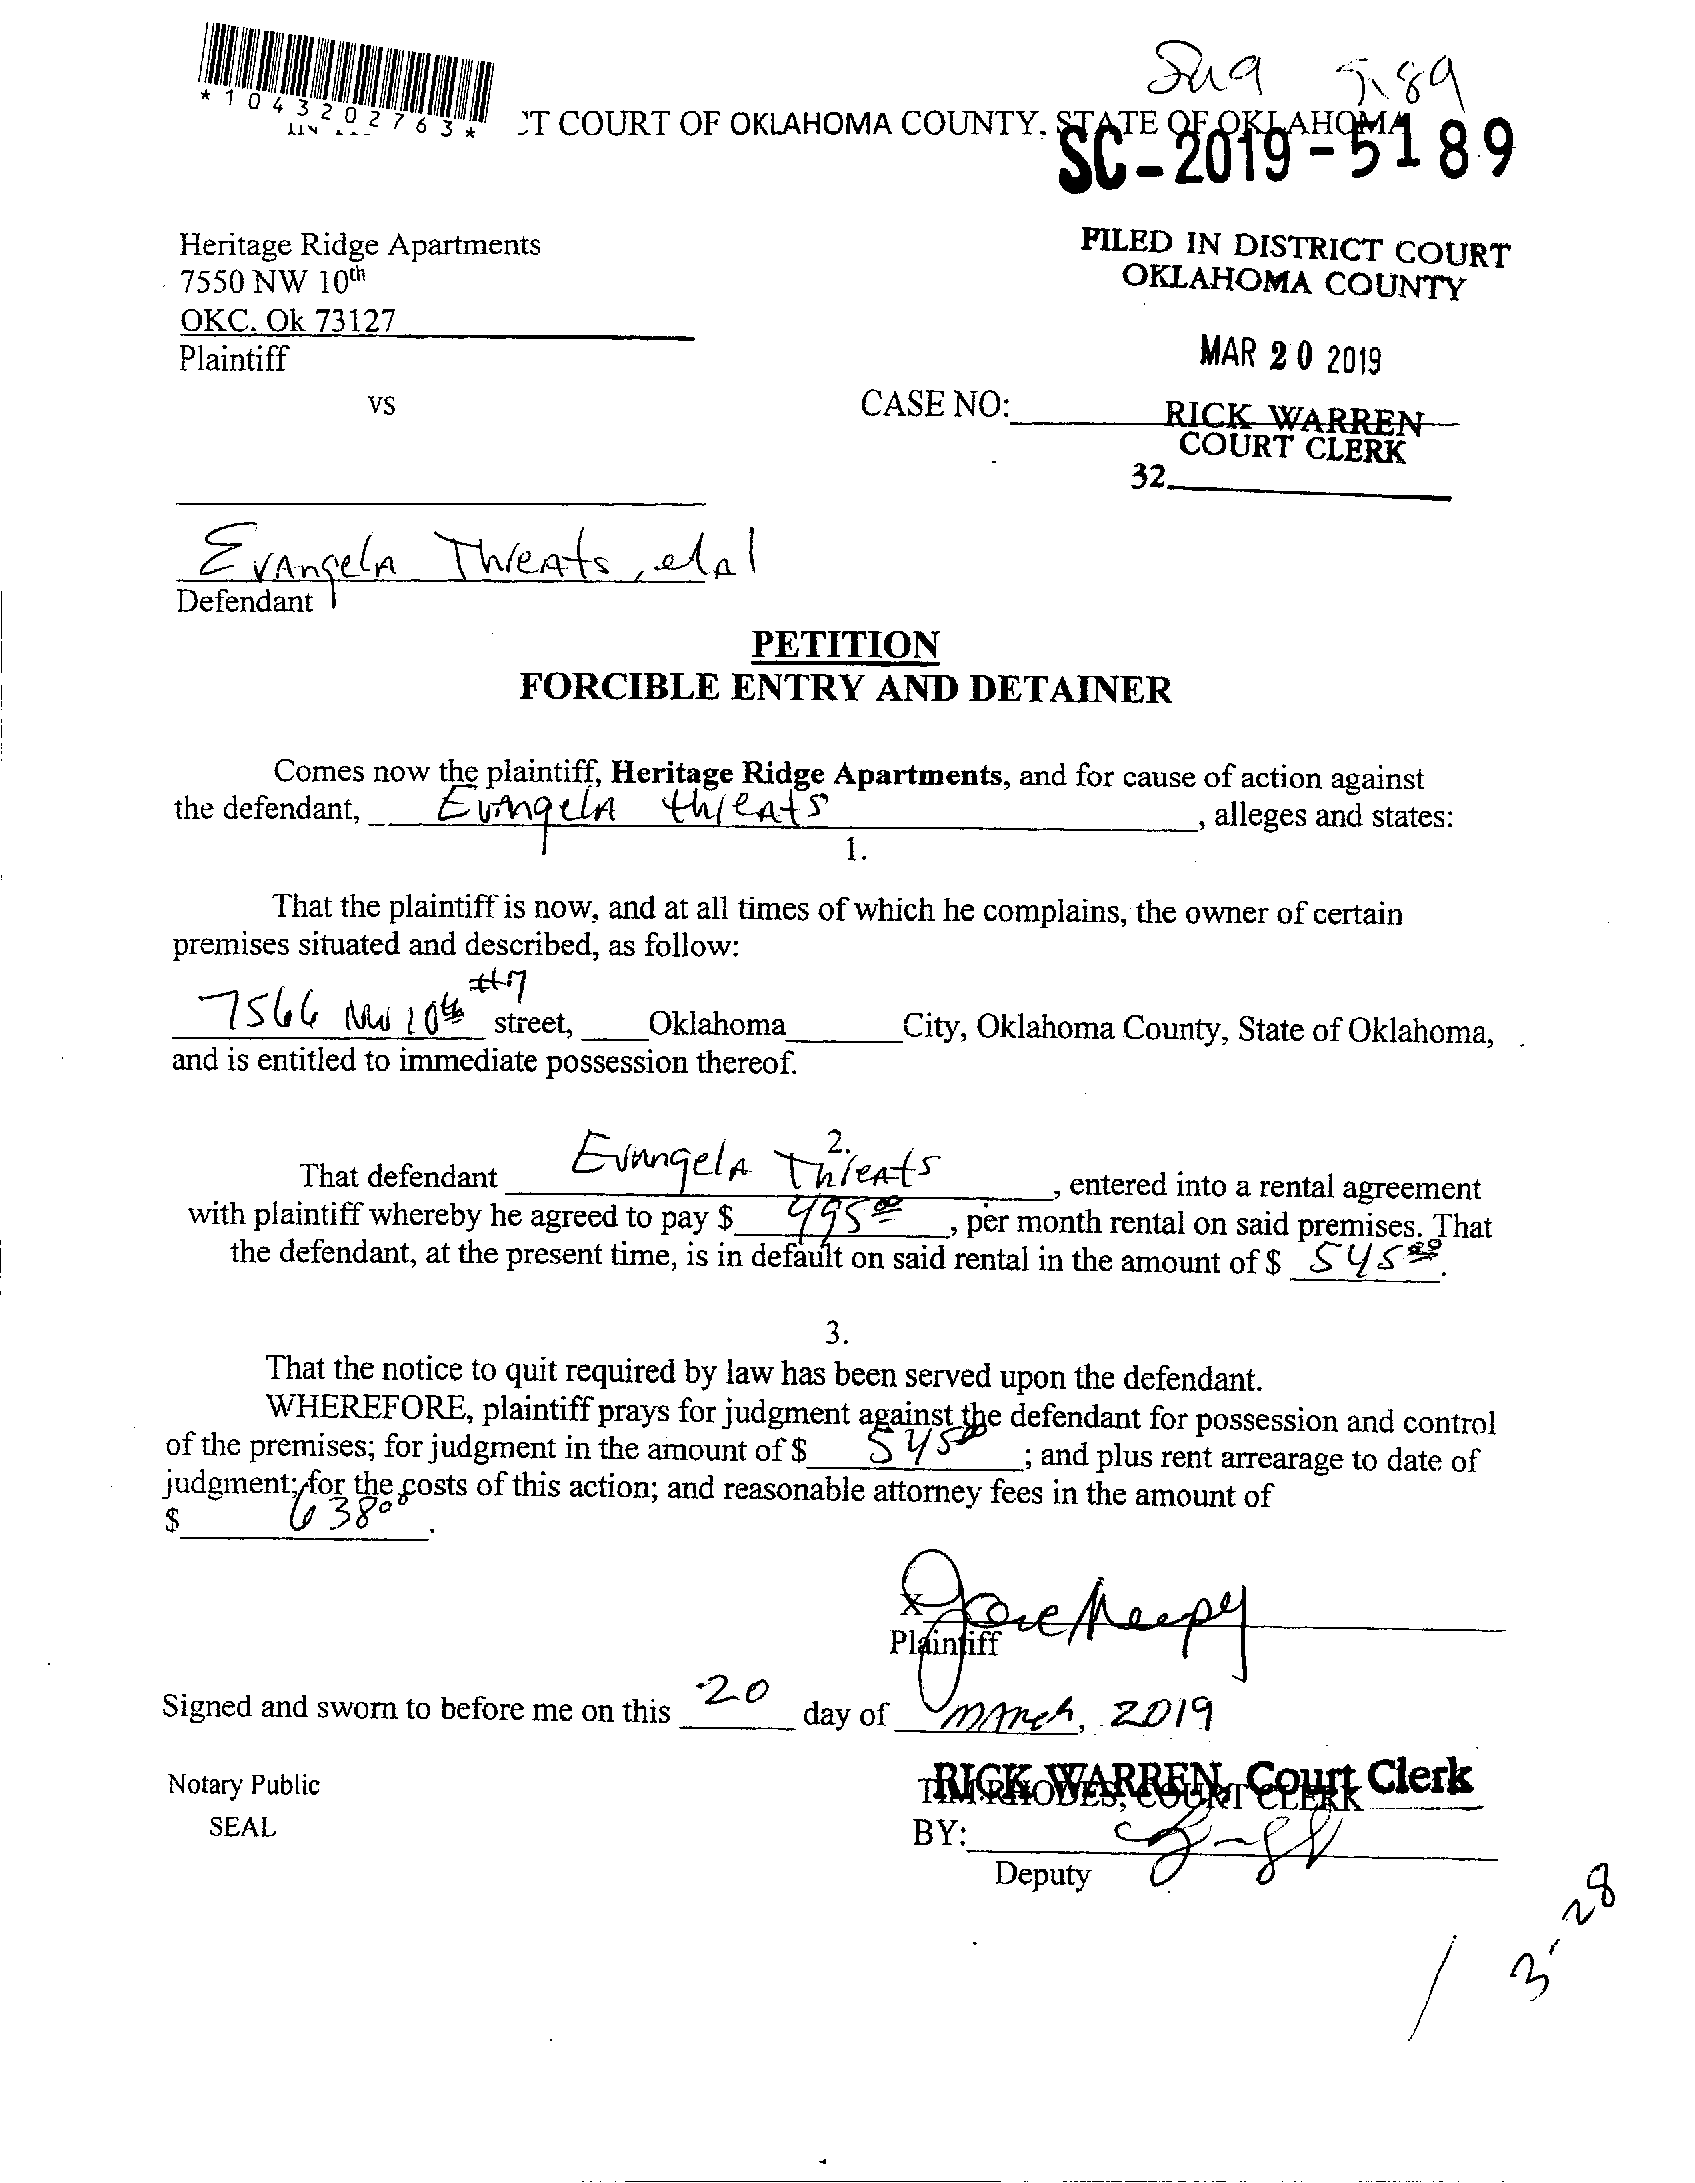 *1043202763*
CT COURT OF OKLAHOMA COUNTY, STATE OF OKLAHOMA
SC-2019-5189
Heritage Ridge Apartments
7550 NW 10th
OKC, Ok 73127
Plaintiff
FILED IN DISTRICT COURT
OKLAHOMA COUNTY
MAR 20 2019
vs
CASE NO:
RICK WARREN
COURT CLERK
32
Evangela Threats, etal
Defendant
PETITION
FORCIBLE ENTRY AND DETAINER
Comes now the plaintiff, Heritage Ridge Apartments, and for cause of action against
the defendant, Evangela threats, alleges and states:
1.
That the plaintiff is now, and at all times of which he complains, the owner of certain
premises situated and described, as follow:
7566 NW 10th #7 street, Oklahoma City, Oklahoma County, State of Oklahoma,
and is entitled to immediate possession thereof.
2.
That defendant Evangela Threats, entered into a rental agreement
with plaintiff whereby he agreed to pay $ 495 00, per month rental on said premises. That
the defendant, at the present time, is in default on said rental in the amount of $ 545 00.
3.
That the notice to quit required by law has been served upon the defendant.
WHEREFORE, plaintiff prays for judgment against the defendant for possession and control
of the premises; for judgment in the amount of $ 545 00; and plus rent arrearage to date of
judgment; for the costs of this action; and reasonable attorney fees in the amount of
$ 638 00.
x
Plaintiff
Signed and sworn to before me on this 20 day of March, 2019
Notary Public
SEAL
RICK WARREN, Court Clerk
TIM RHODES, COURT CLERK
BY:
Deputy
3-28